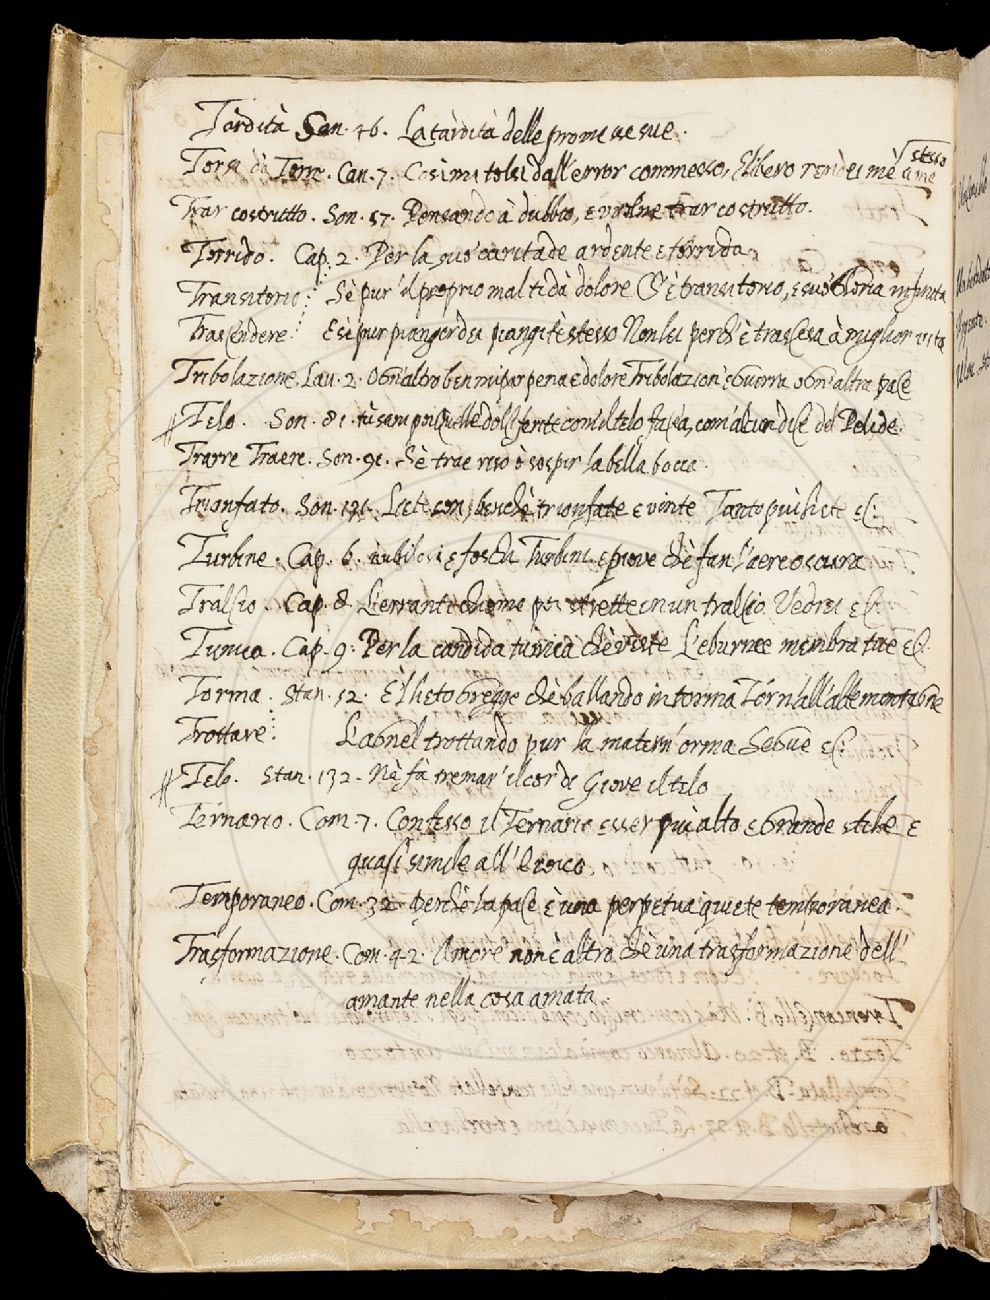 Tardità Son. 46. La tardità delle promesse sue.
Torsi da Torre. Can. 7. Così mi tolsi dall'error commesso, E libero rendei mè a me stesso
Trar costrutto. Son. 57. Pensando à dubbio, e volve trar costrutto.
Torrido. Cap. 2. Per la suo caritade ardente e torrida
Transitorio: Sè pur' il proprio mal ti dà dolore Quest'è transitorio, e suo Gloria infinita
Trascendere: E sè pur pianger dei piangi tè stesso Non lei perch'è trascesa à miglior vita
Tribolazione. Lau. 2. Ogn'altro ben mi par pena e dolore Tribolazion' e Guerra ogn'altra pace
Telo. Son. 81. tù sani poi quelle dolci ferite com'il telo facea, com'alcun dice del Pelide.
Trarre Traere. Son. 91. Chè trae riso ò sospir la bella bocca.
Trionfato. Son. 131. Liete son, benchè trionfate e vinte Tanto più liete ec:
Turbine. Cap. 6. nubilosi e foschi Turbini, e piove chè fan l'aere oscura
Tralcio. Cap. 8. L'erranti chiome poi strette in un tralcio Vedrei ec:
Tunica. Cap. 9: Per la candida tunica chè veste L'eburnee membra tue ec.
Torma. Stan. 52. E'l lieto Gregge chè ballando in torma Torn'all'alte montagne
Trottare: L'agnel trottando pur la matern'orma Segue ec:
Telo. Stan. 132. Nè fà tremar' il cor di Giove il telo
Ternario. Com. 7. Confesso il Ternario esser più alto e Grande stile e
quasi simile all'Eroico
Temporaneo. Com. 32 Perchè la pace è una perpetua quiete temporanea.
Trasformazione. Com. 42. Amore non è altro, chè una trasformazione dell'
amante nella cosa amata.